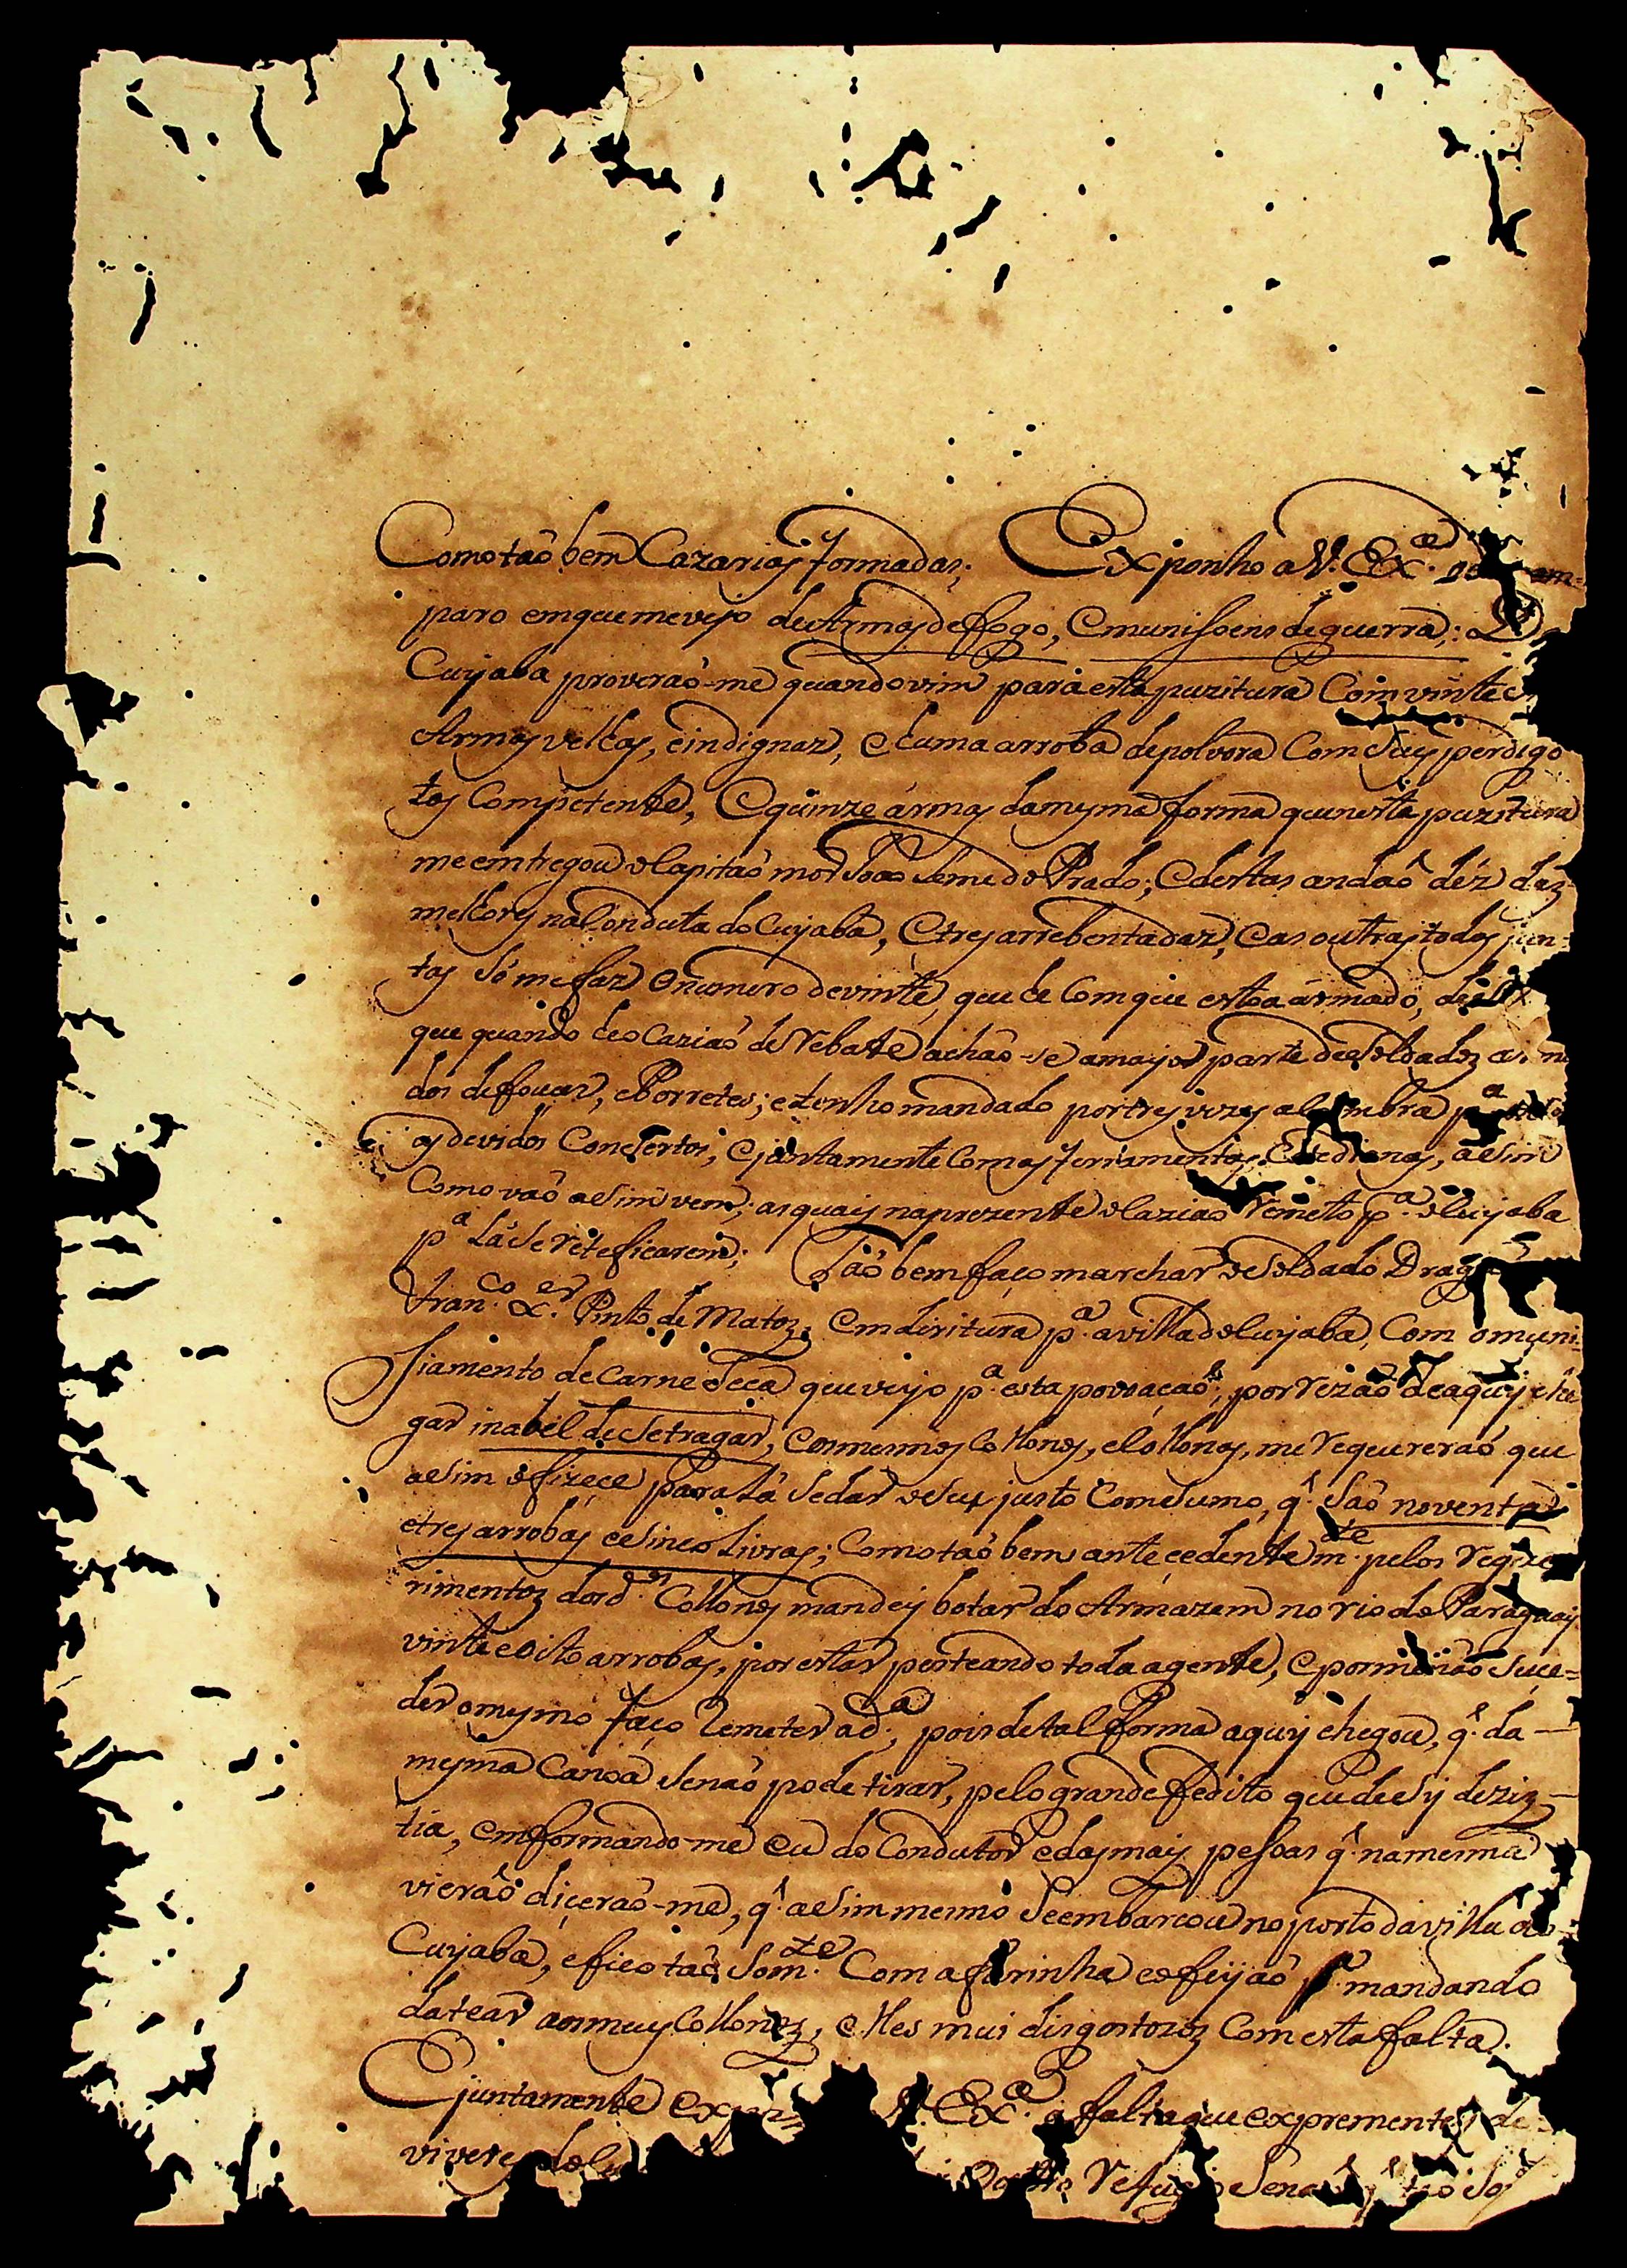 Como taõ bem Cazarias formadas; Exponho a V. Ex.ª
paro em que me vejo de Armas de ffogo, e munisoens de guerra;: D
Cuyaba proveraõ-me quando vim para esta puzitura Com vinte e
Armas velhas, e indignaz, e huma arroba de polvora Com Seus perdigo
tos Competente, e quinze ármas da mesma forma que nesta puzitura
me emtregou o Capitaõ mor Joaõ Leme do Prado; e destas andaõ déz daz
melhores na Conduta do Cuyaba, e tres arrebentadaz, e as outras todas jun=
tas Só me faz o numero de vinte, que he Com que estoa ármado, de
que quando he ocaziaõ de Rebate achaõ-se a mayor parte dos Soldados
dos de fouces, e Porretes; e tenho mandado por tres vezes a p.ª
os devidos Consertos, e juntamente Com as ferramentas, aSim
Como vaõ aSim vem; as quais na prezente ocaziaõ Remeto p.ª o Cuyaba
p.ª Lá Se reteficarem; Taõ bem faço marchar o Soldado Drag
Fran.co X.er Pinto de Matoz, em diritura p.ª a villa do Cuyaba, Com o muni=
siamento de Carne Seca que veyo p.ª esta povoaçaõ, por Rezaõ de aquy che
gar inabel de Se tragar, e os mesmos Collonos, e lo Honos, me Requereraõ que
aSim o fizeçe para Lá Se dar o Seu justo ComSumo, q.' Saõ noventa
e tres arrobas e Sinco Livras; Como taõ bem anteçedente m.te pelos Reque
rimentoz dos d.os Collonos mandey botar do Armazem no rio do Paraguay
vinte e oito arrobas, por estar pesteando toda a gente, e por me naõ Suce=
der o mesmo faço Remeter a d.ª, pois de tal fforma aquy chegou, q.' da
mesma Canoa Se naõ pode tirar, pelo grande ffedito que de Sy deziz
tia, emformando-me eu do Condutor e das mais pesoas q.' na mesma
vieraõ diçeraõ-me, q.' aSim mesmo Se embarcou no porto da villa do
Cuyaba, e fico taõ Som.te Com a farinha e o feijaõ p.ª mandando
datear aos meus Collonoz, e Hes mui disgostozoz Com esta falta.
E juntamente V. Ex.ª a falta que exprementes de
viveres do Refugio Senaõ